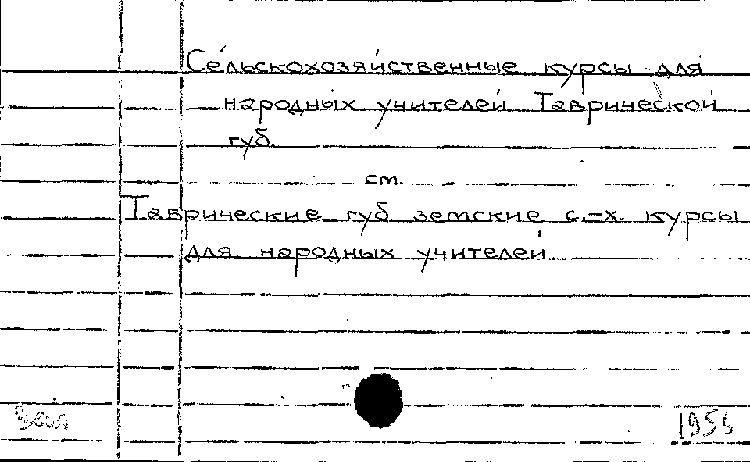 Сельскохозяйственные курсы для
народных учителей Таврической
губ.
см.
Таврические губ земские с.-х. курсы
для народных учителей